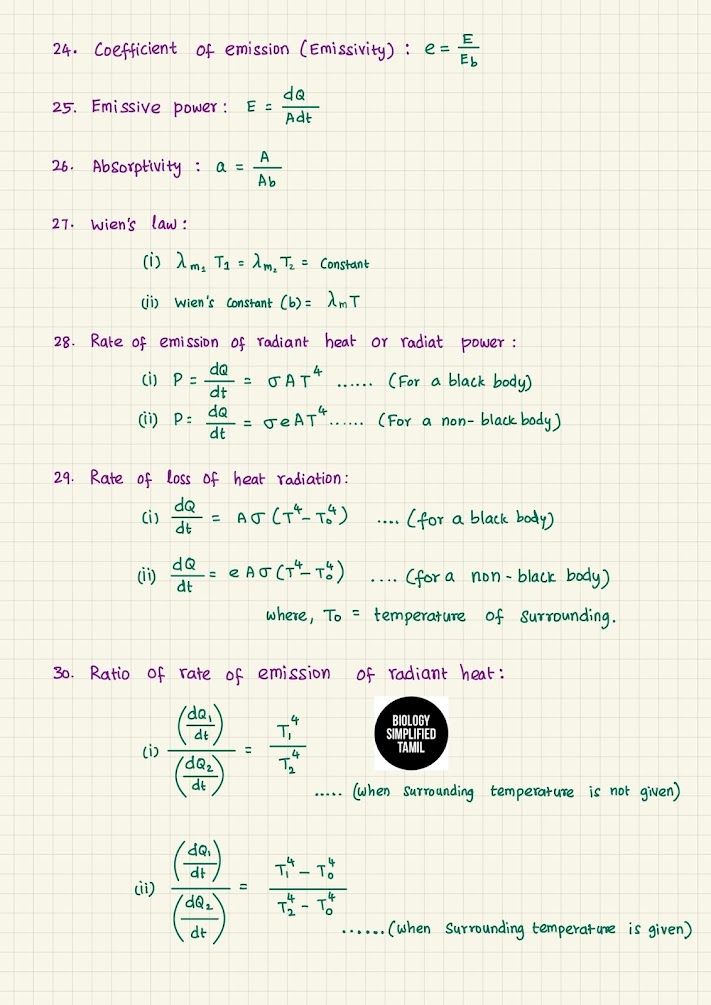 24. Coefficient of emission (Emissivity) : e = E/Eb
25. Emissive power : E = dQ/Adt
26. Absorptivity : a = A/Ab
27. Wien's law :
(i) λm₁ T1 = λm₂ T₂ = Constant
(ii) Wien's Constant (b) = λmT
28. Rate of emission of radiant heat or radiat power :
(i) P = dQ/dt = σAT⁴ ...... (For a black body)
(ii) P = dQ/dt = σeAT⁴ ...... (For a non-black body)
29. Rate of loss of heat radiation:
(i) dQ/dt = Aσ(T⁴ - T₀⁴) .... (for a black body)
(ii) dQ/dt = eAσ(T⁴ - T₀⁴) .... (for a non-black body)
where, T₀ = temperature of surrounding.
30. Ratio of rate of emission of radiant heat :
BIOLOGY
SIMPLIFIED
TAMIL
(i) (dQ₁/dt)/(dQ₂/dt) = T₁⁴/T₂⁴
..... (when surrounding temperature is not given)
(ii) (dQ₁/dt)/(dQ₂/dt) = (T₁⁴ - T₀⁴)/(T₂⁴ - T₀⁴)
...... (when surrounding temperature is given)